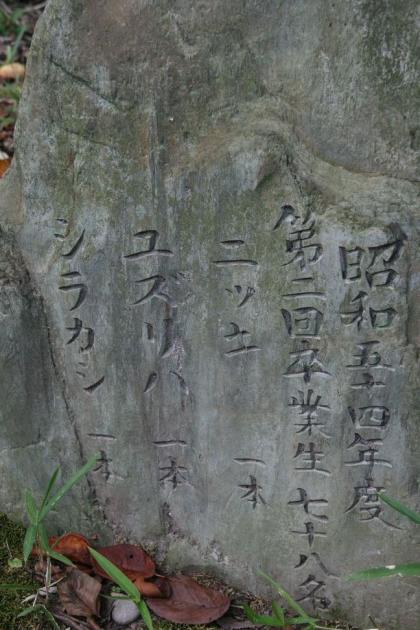 昭和五十四年度
第二回卒業生 七十八名
ニッキ 一本
ユズリハ 一本
シラカシ 一本